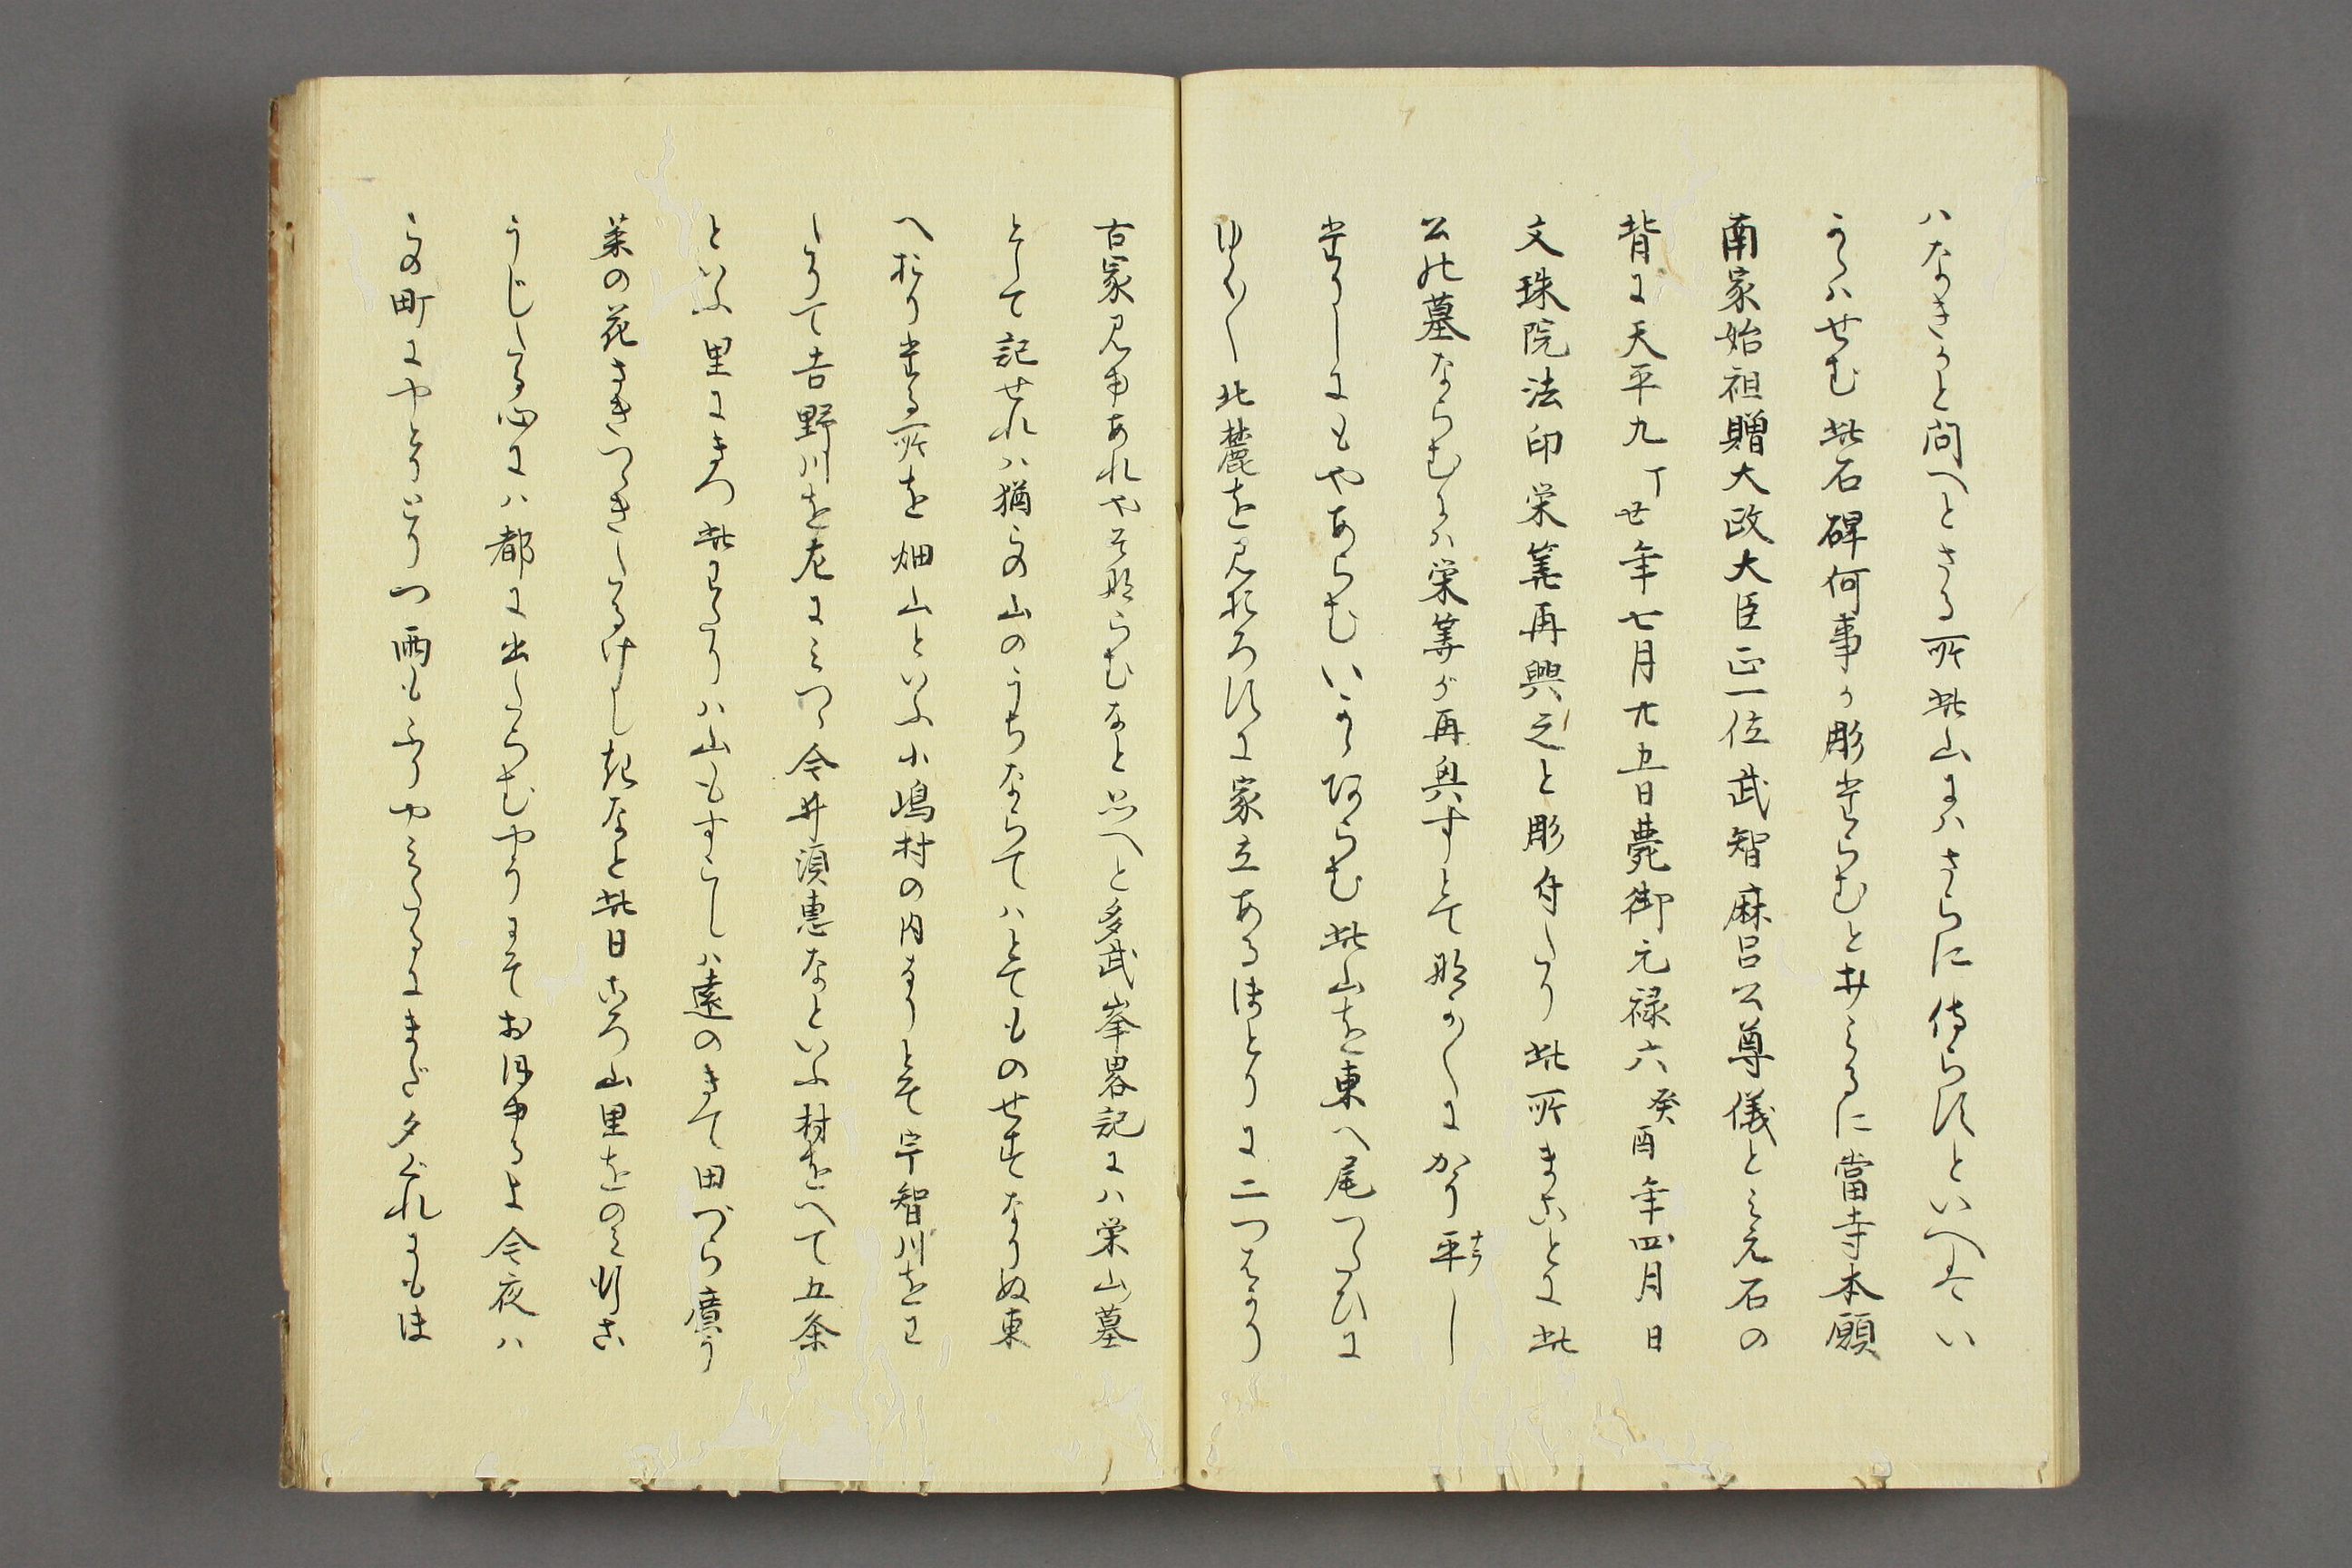 ハなきかと問へとさる所此山にハさらに侍らすといへはい
かゝハせむ此石碑何事か彫たらむとよみみるに當寺本願
南家始祖贈大政大臣正一位武智麻呂公尊儀とみえ石の
背に天平九丁丑年七月廿五日薨御元禄六癸酉年四月日
文殊院法印栄算再興之と彫付たり此所まことに此
公の墓ならむにハ栄算が再興すとて那かくにかり平し
たりしにもやあらむいかゝあらむ此山を東へ尾つたひに
ゆく〳〵北麓を見おろすに家立あるほとりに二つはかり
古冢見ゆあれやそ那らむなと思へと多武峯畧記にハ栄山墓
として記せれハ猶この山のうちならてハとてものせすなりぬ東
へおりたる所を畑山といふ小嶋村の内なりとそ宇智川をわ
たりて吉野川を左にみつゝ今井須恵なといふ村をへて五条
といふ里にきつ此わたりハ山もすこしハ遠のきて田づら廣う
菜の花さきつゝきたるけしきなと此日ころ山里をのみ行こ
うじたる心にハ都に出たらむやうにそおほゆるよ今夜ハ
この町にやとりとりつ雨もふりやみたるにまだ夕ぐれにもほ